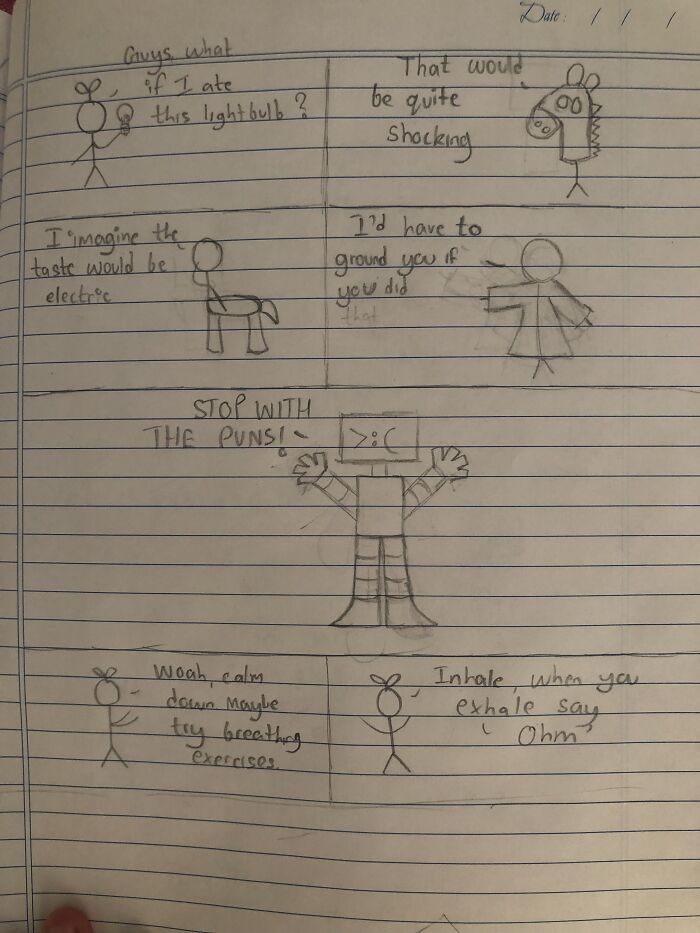 Date: / / /
Guys, what
if I ate
this lightbulb?
That would
be quite
shocking
I imagine the
taste would be
electric
I'd have to
ground you if
you did
that
STOP WITH
THE PUNS!
>:(
Woah, calm
down Maybe
try breathing
exercises.
Inhale, when you
exhale say
' Ohm'